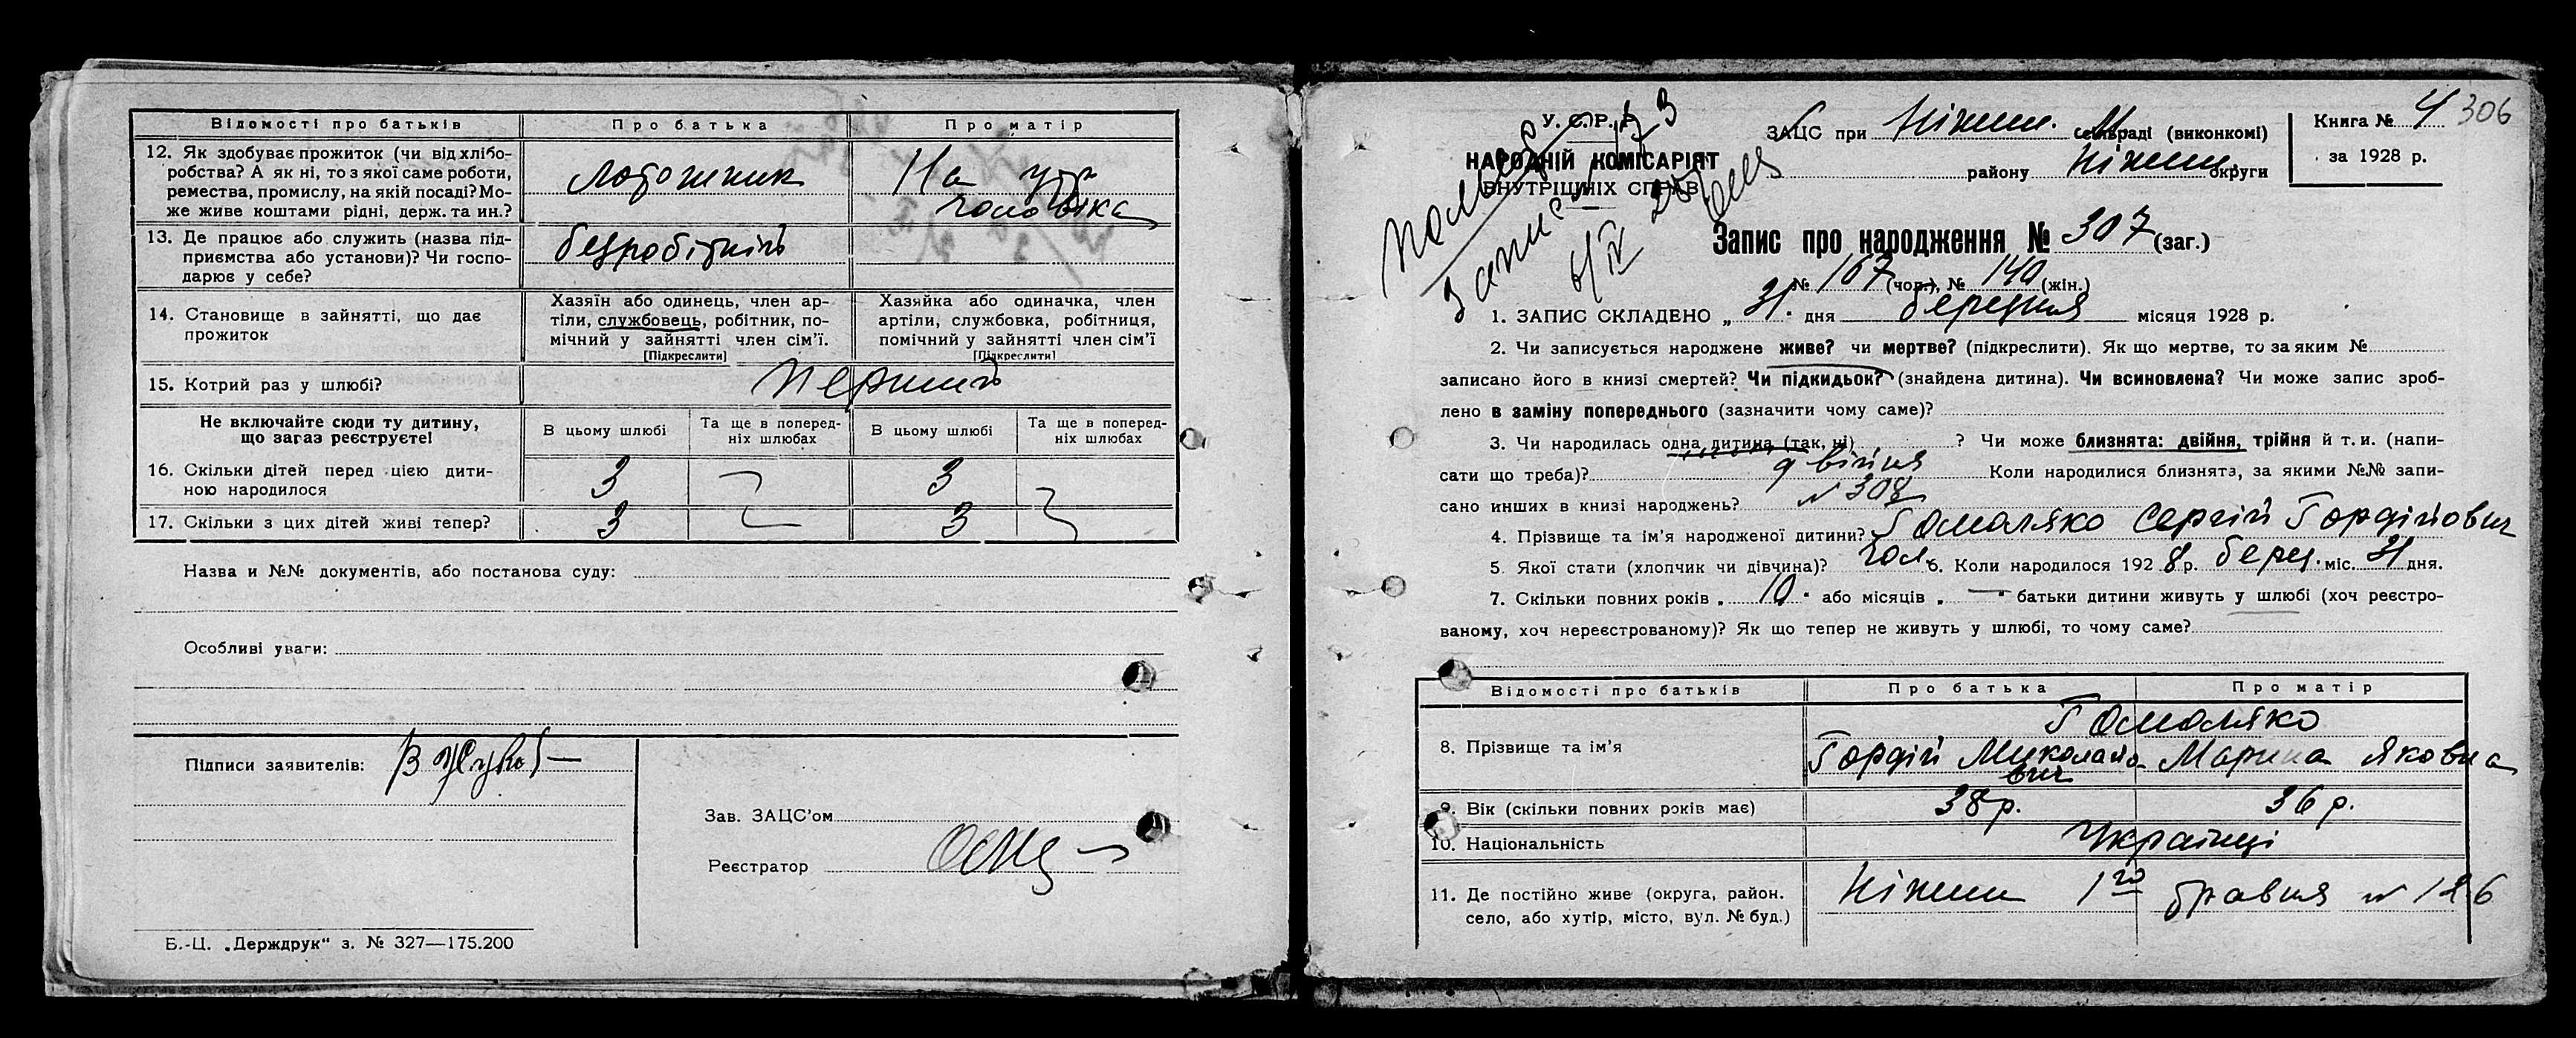 Відомості про батьків Про батька Про матір
12. Як здобуває прожиток (чи від хлібо-
робства? А як ні, то з якої саме роботи,
ремества, промислу, на якій посаді? Мо-
же живе коштами рідні, держ. та ин.?
Лотошник На утр
чоловіка
13. Де працює або служить (назва під-
приємства або установи)? Чи госпо-
дарює у себе?
безробітній
14. Становище в зайнятті, що дає
прожиток
Хазяїн або одинець, член ар-
тіли, службовець, робітник, по-
мічний у зайнятті член сім’ї.
[Підкреслити]
Хазяйка або одиначка, член
артіли, службовка, робітниця,
помічний у зайнятті член сім’ї
[Підкреслити]
15. Котрий раз у шлюбі? перший
Не включайте сюди ту дитину,
що зараз реєструєте!
В цьому шлюбі Та ще в поперед-
ніх шлюбах В цьому шлюбі Та ще в поперед-
ніх шлюбах
16. Скільки дітей перед цією дити-
ною народилося 3 3
17. Скільки з цих дітей живі тепер? 3 3
Назва и №№ документів, або постанова суду:
Особливі уваги:
Підписи заявителів:
Зав. ЗАЦС’ом
Реєстратор
Б.-Ц. „Держдрук“ з. № 327—175.200
306
У. С. Р. Р.
НАРОДНІЙ КОМІСАРІЯТ
ВНУТРІШНІХ СПРАВ
ЗАЦС при Ніжин. сельраді (виконкомі)
району Ніжин. округи
Книга № 4
за 1928 р.
Запис про народження № 307 (заг.)
№ 167 (чол.), № 140 (жін.)
1. ЗАПИС СКЛАДЕНО „ 31 дня березня місяця 1928 р.
2. Чи записується народжене живе? чи мертве? (підкреслити). Як що мертве, то за яким №
записано його в книзі смертей? Чи підкидьок? (знайдена дитина). Чи всиновлена? Чи може запис зроб-
лено в заміну попереднього (зазначити чому саме)?
3. Чи народилась одна дитина (так, ні) ? Чи може близнята: двійня, трійня й т. и. (напи-
сати що треба)? двійня Коли народилися близнята, за якими №№ запи-
сано инших в книзі народжень? № 308
4. Прізвище та ім’я народженої дитини? Гомоляко Сергій Гордійович
5. Якої стати (хлопчик чи дівчина)? чол. 6. Коли народилося 1928 р. берез. міс. 31 дня.
7. Скільки повних років „ 10 " або місяців „ — " батьки дитини живуть у шлюбі (хоч реєстро-
ваному, хоч нереєстрованому)? Як що тепер не живуть у шлюбі, то чому саме?
Відомості про батьків Про батька Про матір
8. Прізвище та ім’я
Гомоляко
Гордій Миколайо
вич
Марина Яковна
9. Вік (скільки повних років має) 38 р. 36 р.
10. Національність Українці
11. Де постійно живе (округа, район.
село, або хутір, місто, вул. № буд.)
Ніжин 1го травня № 126